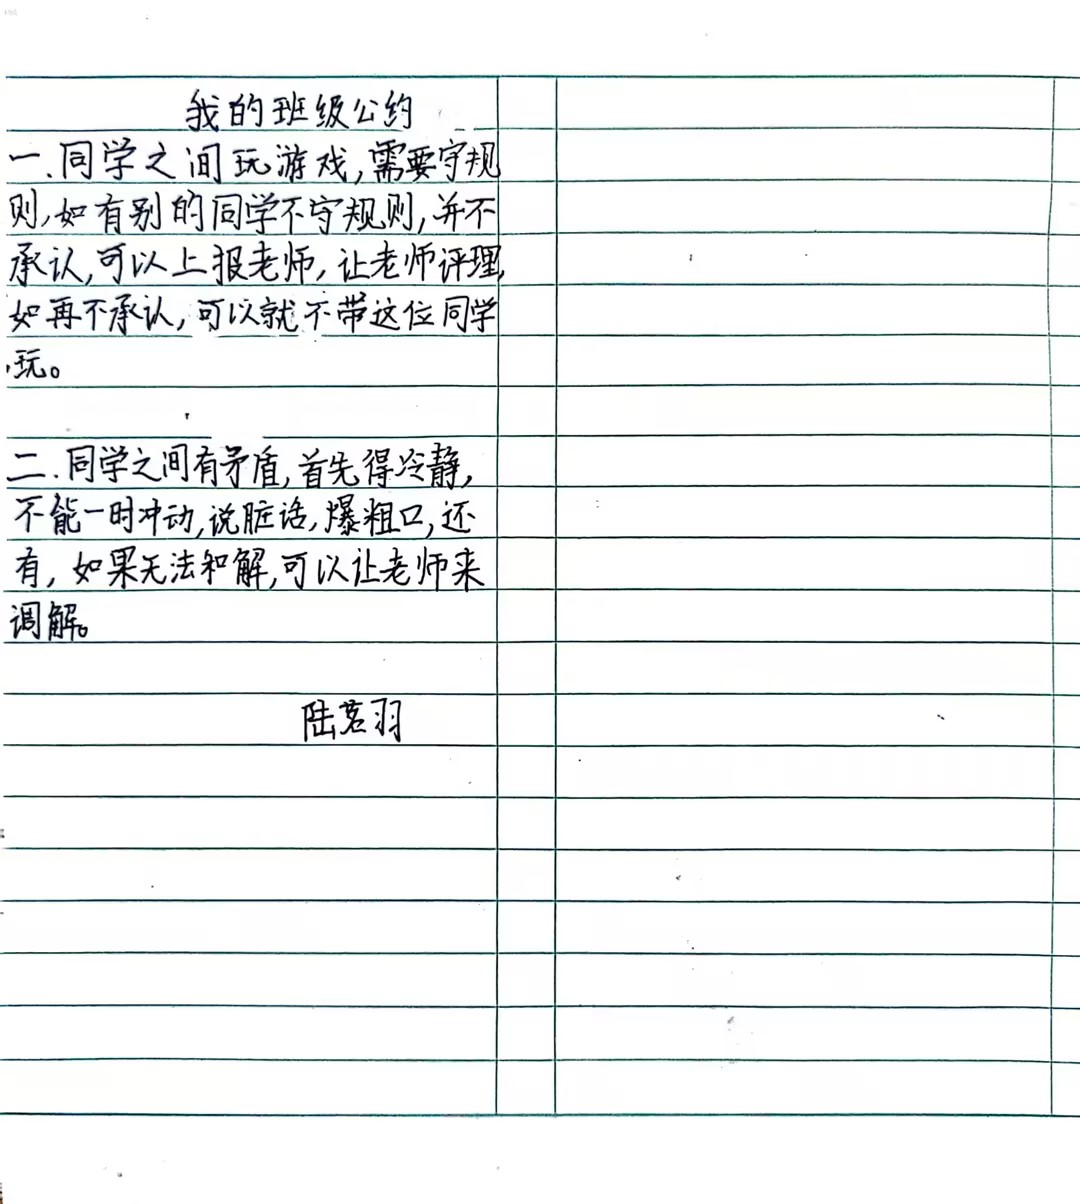 我的班级公约
一.同学之间玩游戏,需要守规
则,如有别的同学不守规则,并不
承认,可以上报老师,让老师评理,
如再不承认,可以就不带这位同学
玩。
二.同学之间有矛盾,首先得冷静,
不能一时冲动,说脏话,爆粗口,还
有,如果无法和解,可以让老师来
调解。
陆茗羽